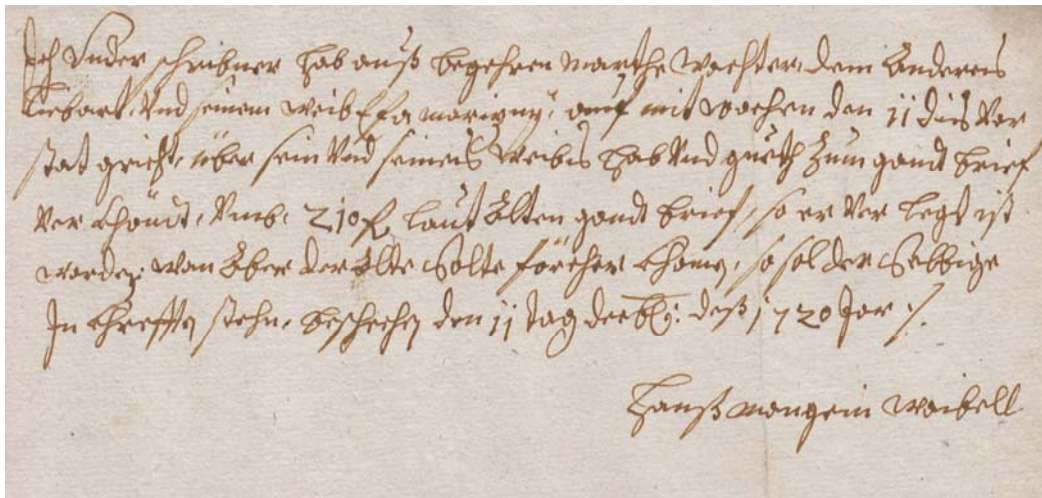 Ich Under schribner hab auß begehren Marthe Wachter, dem Andereis
Liebart, Und seinem weib Efa marwyny, auf mitwochen den 11 dis Vor
stat gricht, über sein Und seineis Weibis hab Und gueth Zum gandt brief
Ver khöndt, Vmb, 210 fl, laut Alten gandt brief, so er Ver legt ist
worden, wan Aber der Alte Solte förcher khomen, so sol der Selbige
In khrefften stehn, bescheehen den 11 tag deeb: deß 1720 Jor ./.
Hanß mangein Weibell